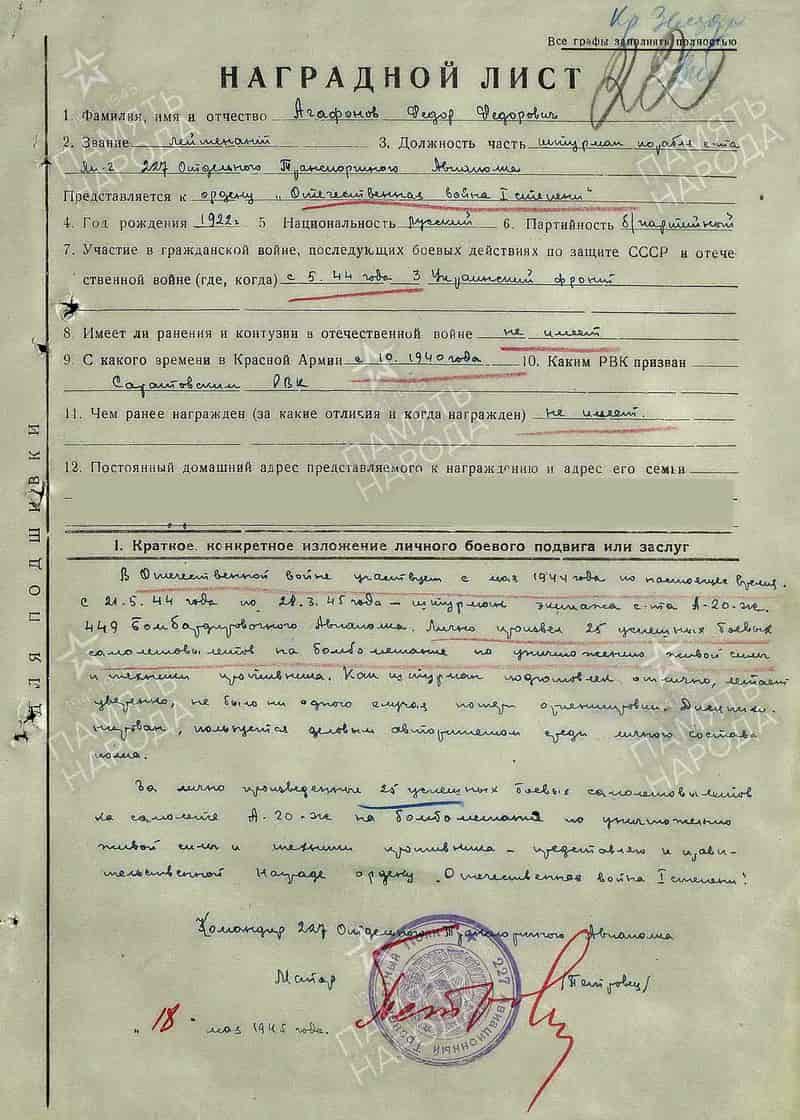 Кр Звезда
Все графы заполнять полностью
НАГРАДНОЙ ЛИСТ
1. Фамилия, имя и отчество Агафонов Федор Федорович
2. Звание лейтенант 3. Должность часть штурман корабля с-та
227 Отдельного Транспортного Авиаполка
Представляется к ордену „Отечественная война I степени"
4. Год рождения 1922г 5 Национальность русский 6. Партийность б/партийный
7. Участие в гражданской войне, последующих боевых действиях по защите СССР и отече-
ственной войне (где, когда) с 5.44 года 3 Украинский фронт
8. Имеет ли ранения и контузии в отечественной войне не имеет
9. С какого времени в Красной Армии с 10.1940 года 10. Каким РВК призван
Саратовским РВК
11. Чем ранее награжден (за какие отличия и когда награжден) не имеет.
12. Постоянный домашний адрес представляемого к награждению и адрес его семьи
I. Краткое, конкретное изложение личного боевого подвига или заслуг
В Отечественной войне участвует с мая 1944 года по настоящее время.
С 21.5.44 года по 28.3.45 года – штурман экипажа с-та А-20-же.
449 Бомбардировочного Авиаполка. Лично произвел 25 успешных боевых
самолетовылетов на бомбометание по уничтожению живой силы
и техники противника. Как штурман подготовлен отлично, летает
уверенно, не было ни одного случая потери ориентировки. Дисципли-
нирован, пользуется деловым авторитетом среди личного состава
полка.
За лично произведенные 25 успешных боевых самолетовылетов
на самолете А-20-же на бомбометание по уничтожению
живой силы и техники противника – представляю к прави-
тельственной награде ордену „Отечественная война I степени".
Командир 227 Отдельного Транспортного Авиаполка
Майор /Петровец/
„18" мая 1945 года.
227 Авиационный Транспортный Полк
ДЛЯ ПОДШИВКИ
ПАМЯТЬ НАРОДА
ПАМЯТЬ НАРОДА
ПАМЯТЬ НАРОДА
ПАМЯТЬ НАРОДА
ПАМЯТЬ НАРОДА
ПАМЯТЬ НАРОДА